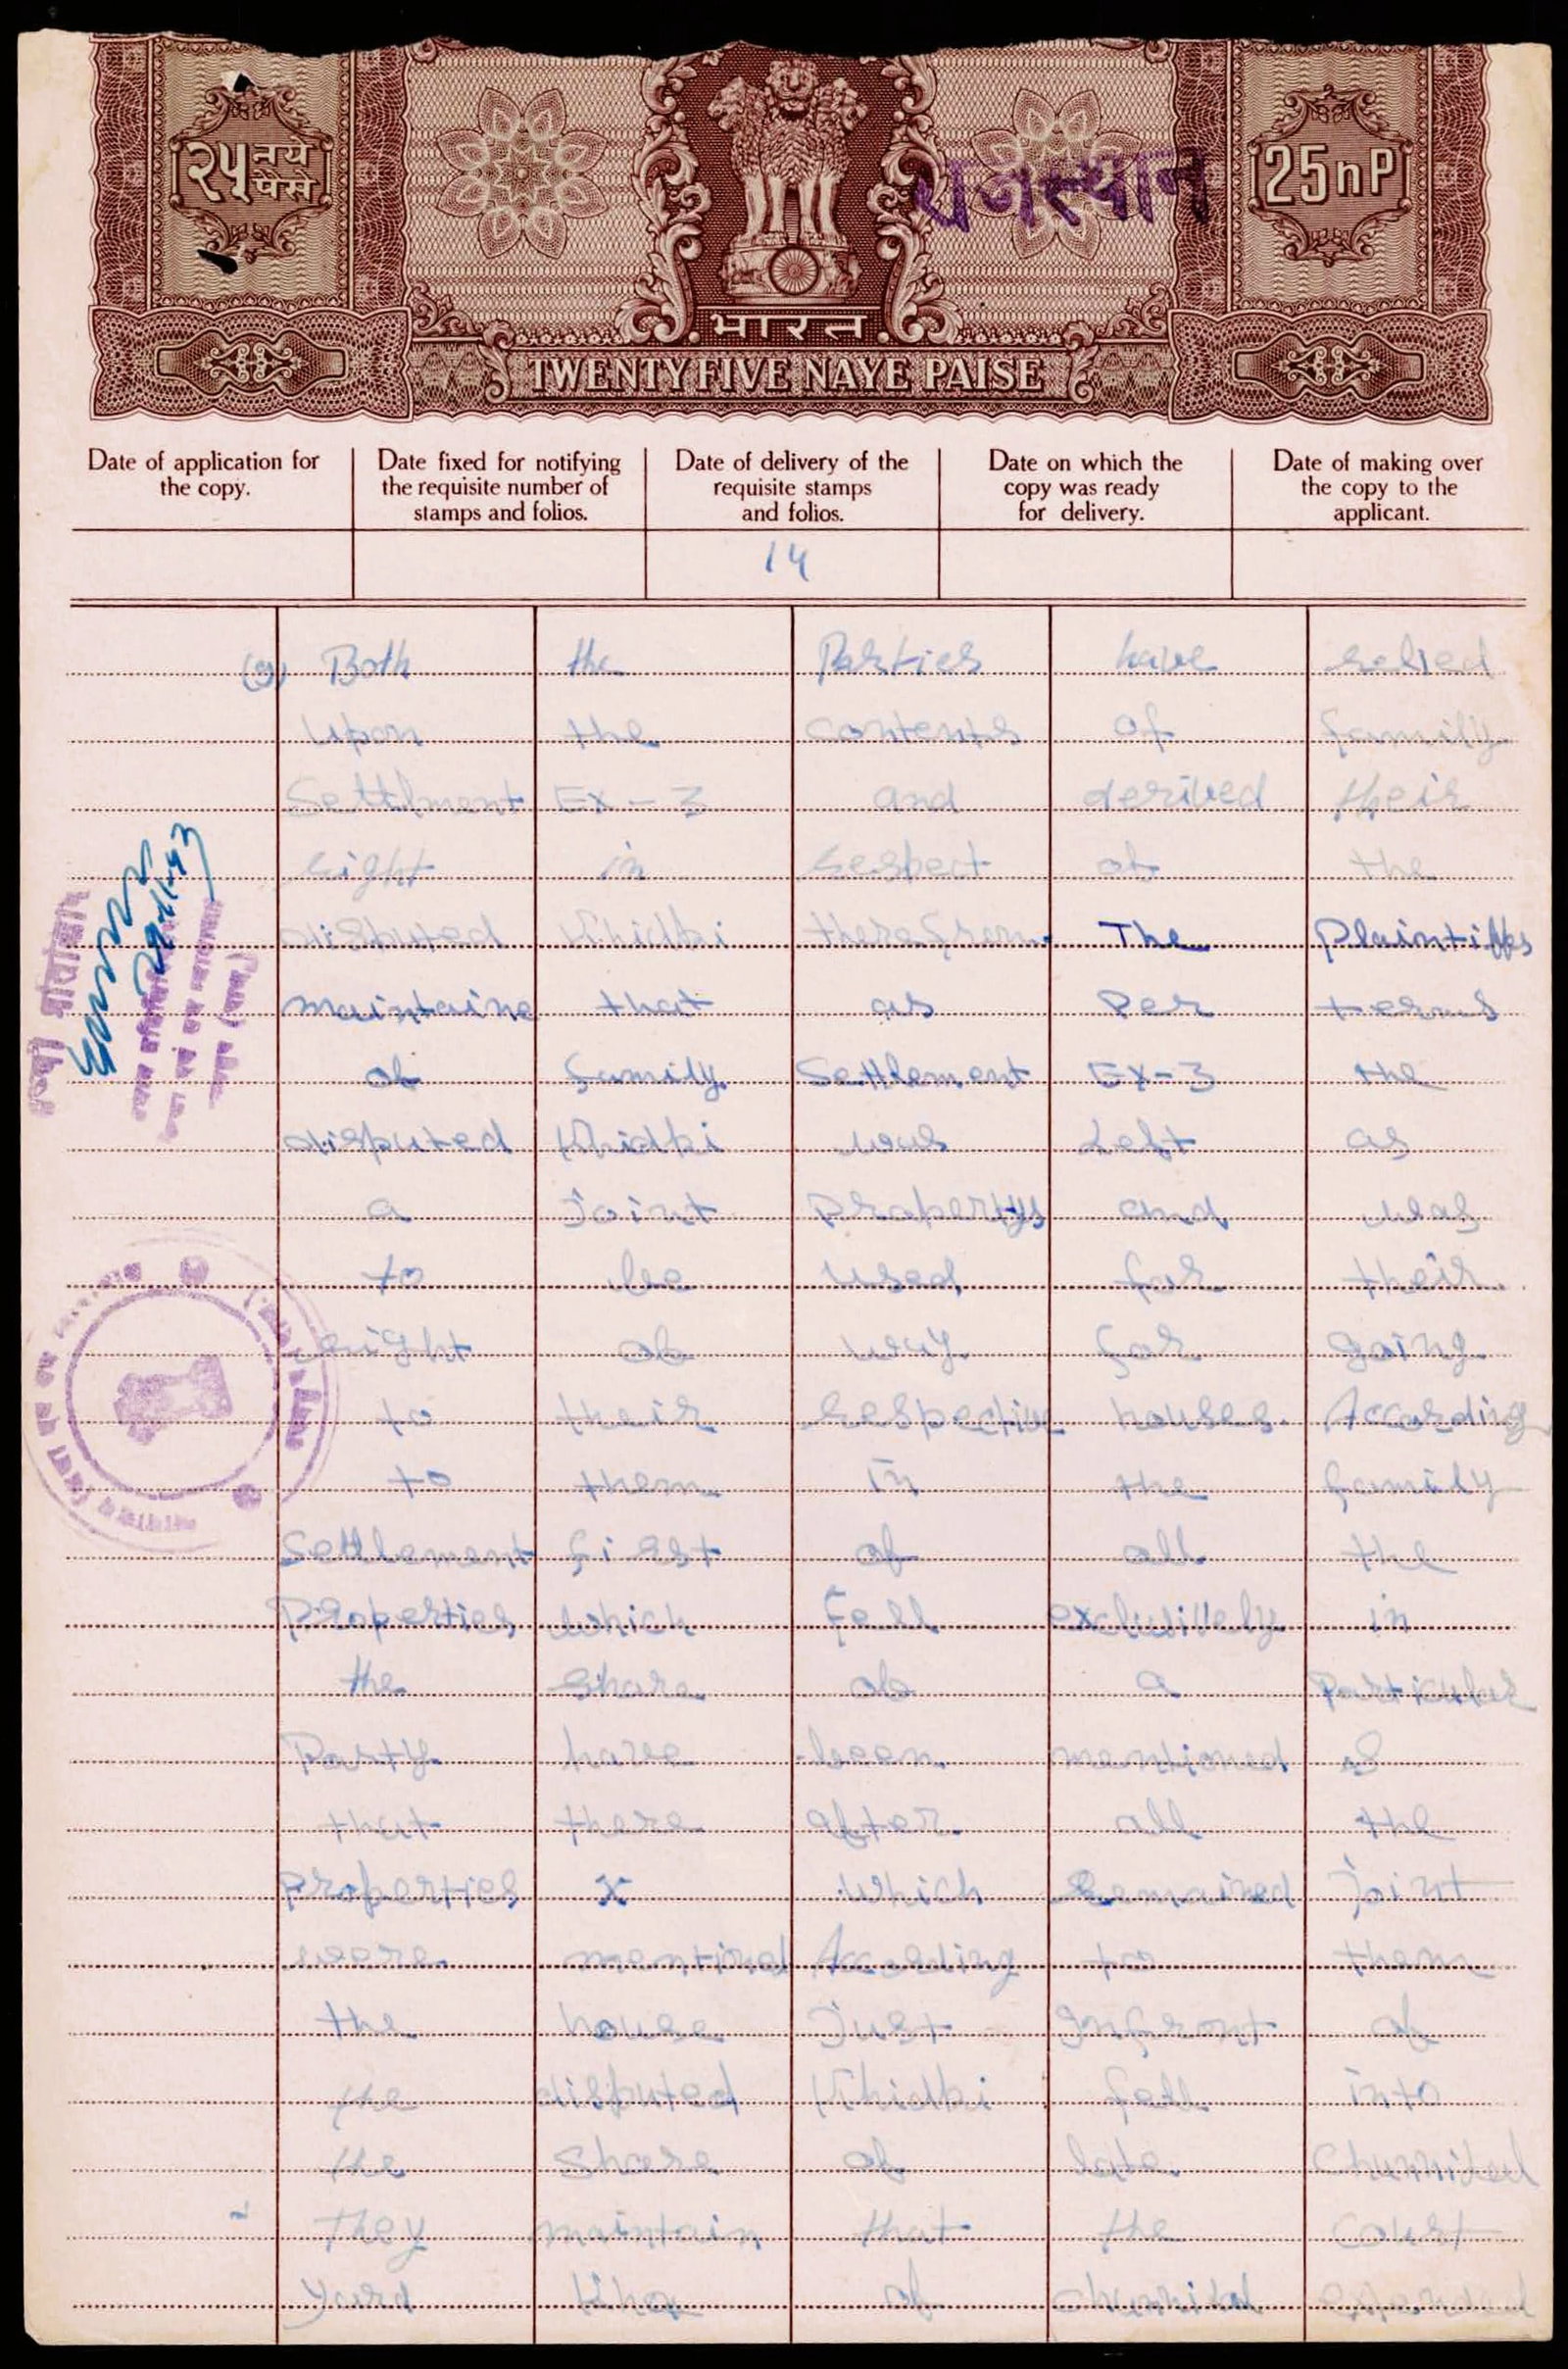 २५ नये पैसे
राजस्थान
25 nP
भारत
TWENTY FIVE NAYE PAISE
Date of application for the copy.
Date fixed for notifying the requisite number of stamps and folios.
Date of delivery of the requisite stamps and folios.
Date on which the copy was ready for delivery.
Date of making over the copy to the applicant.
14
(9) Both the Parties have relied
upon the contents of family
Settlment Ex-3 and derived their
right in respect of the
disputed Khidki therefrom. The Plaintiffs
maintaine that as Per terms
of family Settlement Ex-3 the
disputed Khidki was Left as
a joint propertys and was
to be used for their
right of way for going
to their respective houses. According
to them in the family
Settlement first of all the
Properties which fell exclusively in
the share of a Particular
Party have been mentioned &
that there after all the
properties x which Remained joint
were mentioned According to them
the house just Infront of
the disputed Khidki fell into
the Share of late Chunnilal
They maintain that the court
yard of Chunnilal